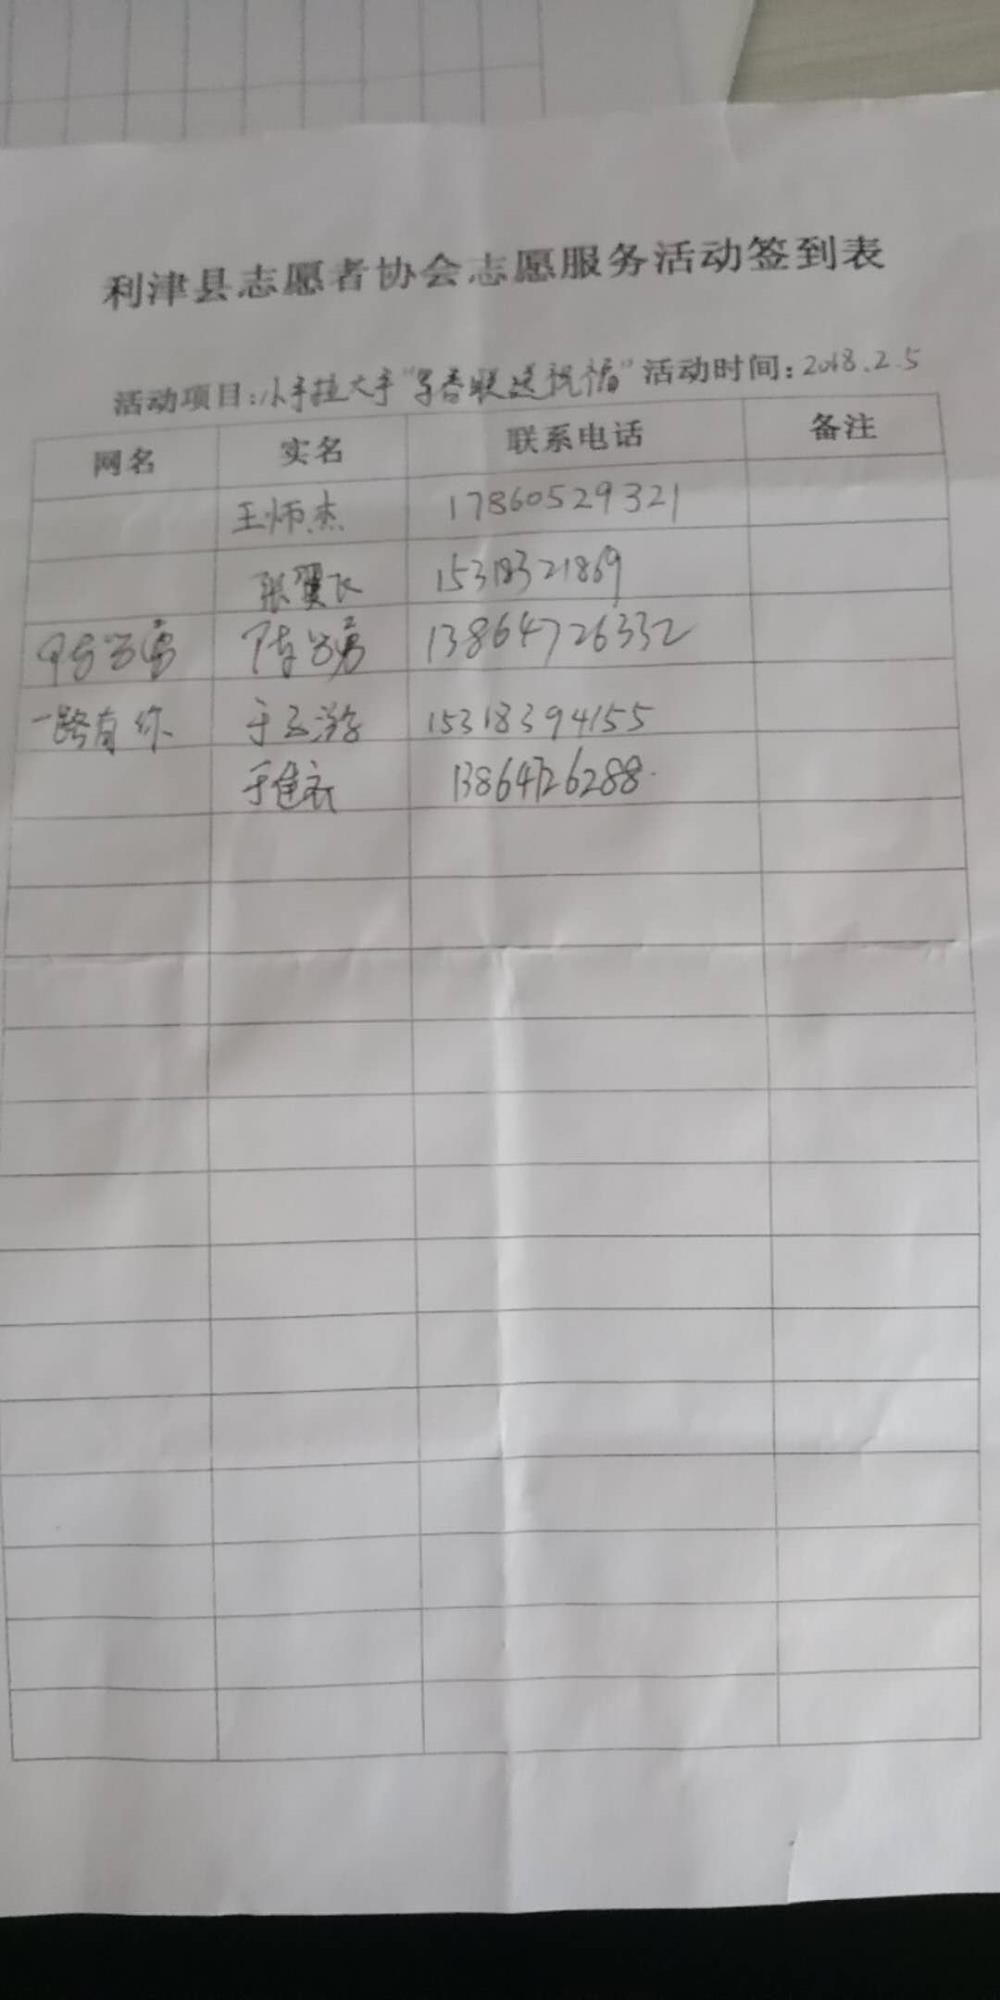 利津县志愿者协会志愿服务活动签到表
活动项目:小手拉大手"写春联送祝福" 活动时间:2018.2.5
网名 实名 联系电话 备注
王炳杰 17860529321
张翼飞 15318321869
13864726332
一路有你 于云游 15318394155
13864726288